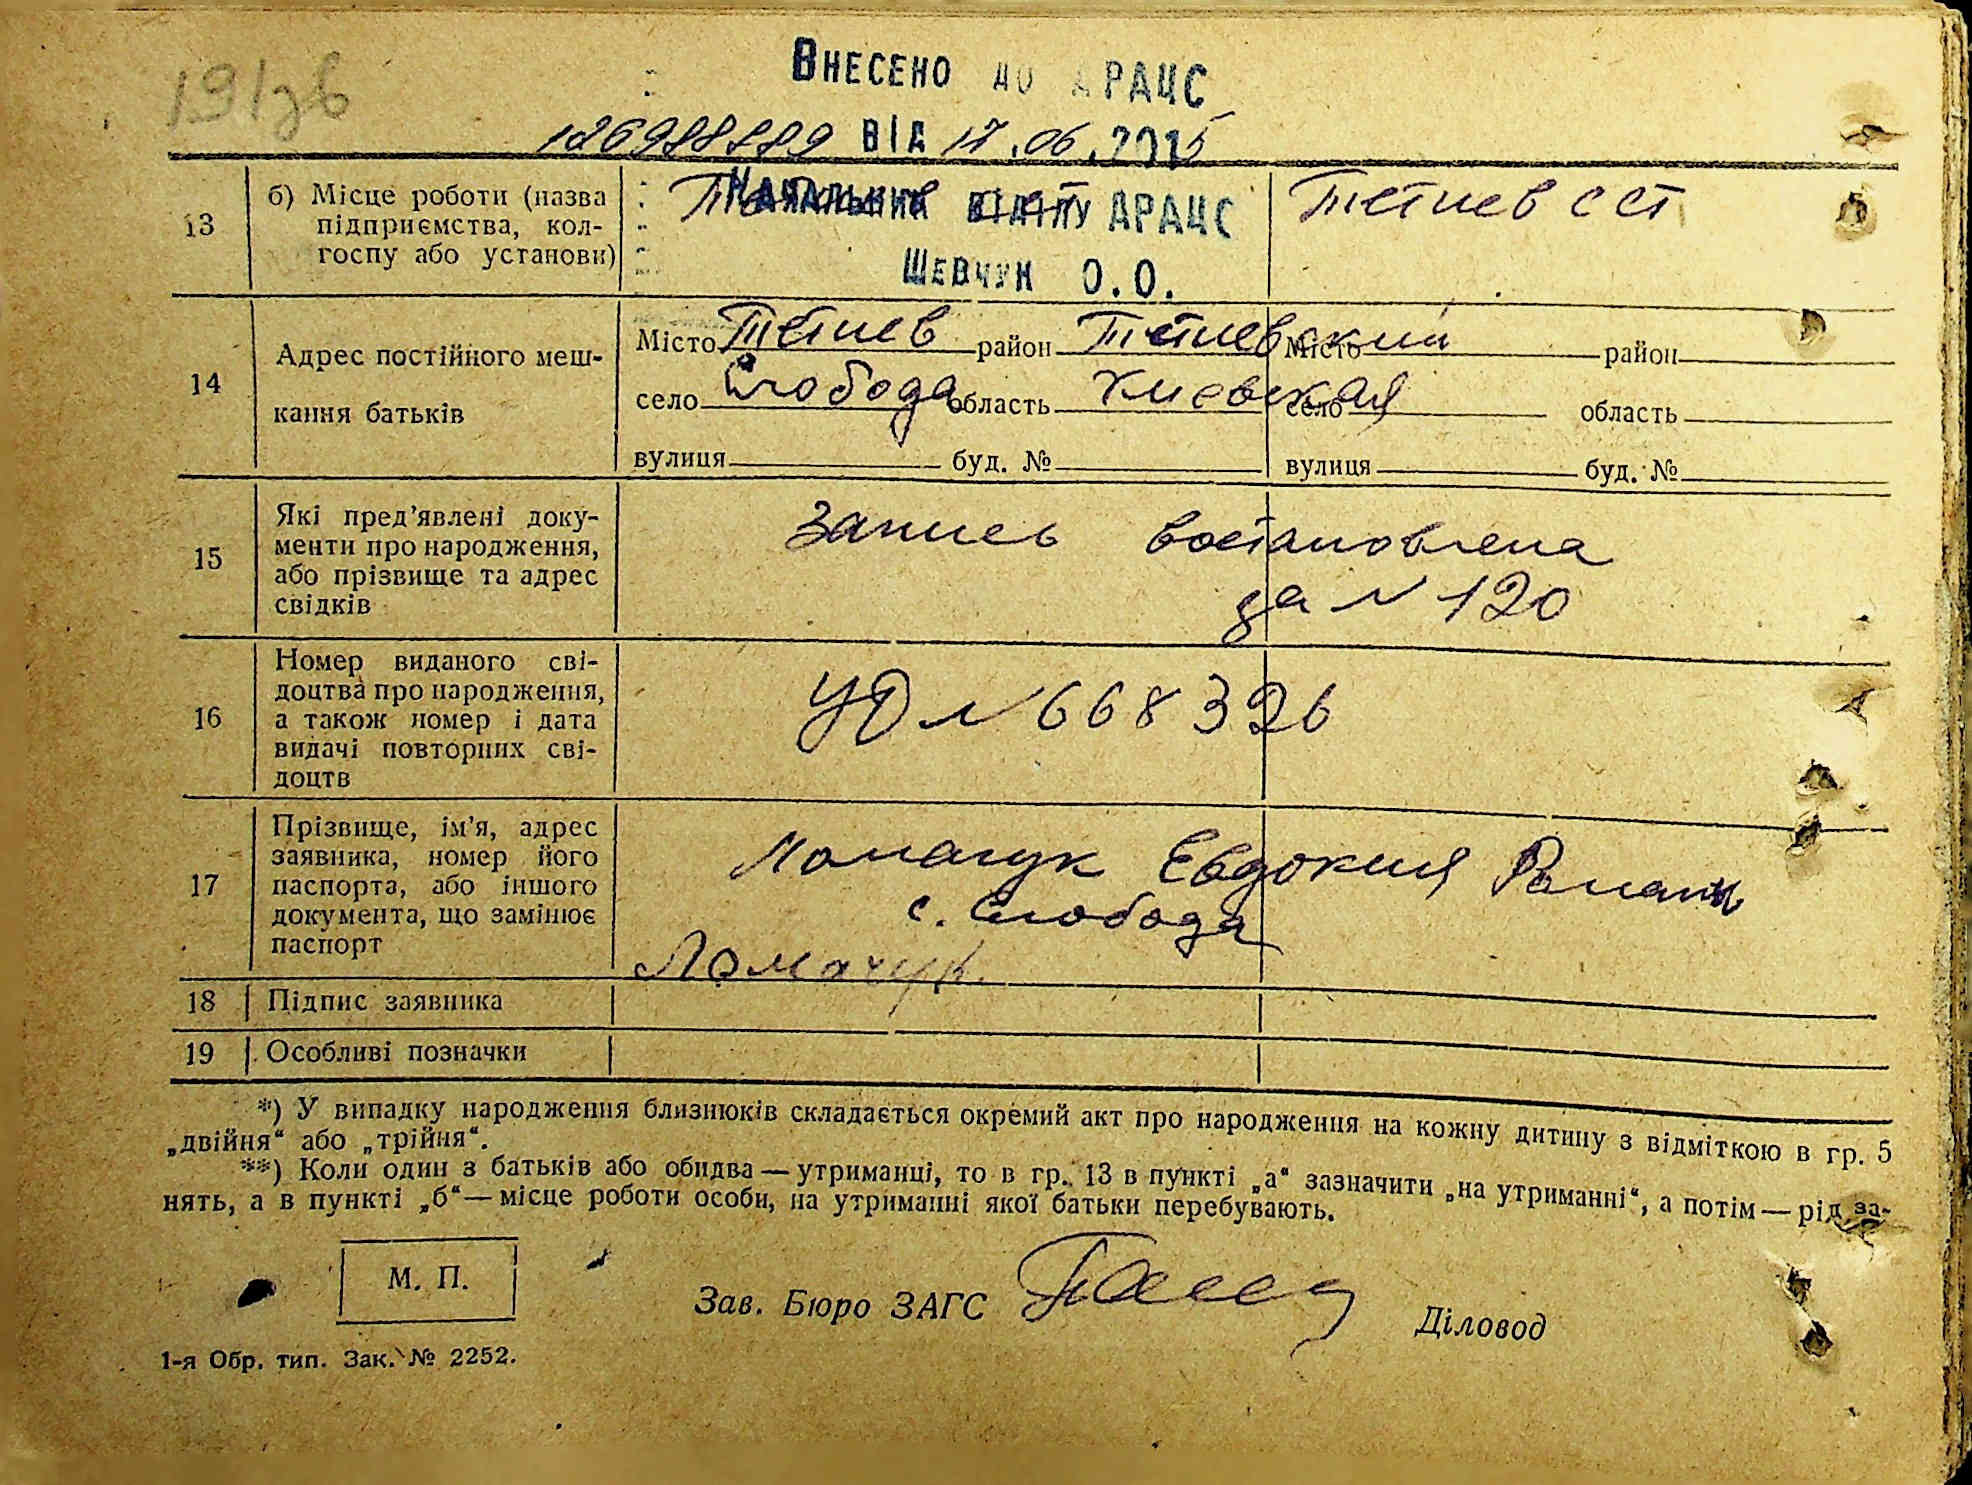 191зв
Внесено до ДРАЦС
126988889 від 17.06.2015
Начальник відділу ДРАЦС
Шевчук О.О.
13 б) Місце роботи (назва підприємства, кол-
госпу або установи) Тетиев сст
14 Адрес постійного меш-
кання батьків
Місто Тетиев район Тетиевский Місто район
село Слобода область Киевская село область
вулиця буд. № вулиця буд. №
15 Які пред'явлені доку-
менти про народження,
або прізвище та адрес
свідків
Запись востановлена
за № 120
16 Номер виданого сві-
доцтва про народження,
а також номер і дата
видачі повторних сві-
доцтв
УД № 668326
17 Прізвище, ім'я, адрес
заявника, номер його
паспорта, або іншого
документа, що замінює
паспорт
Ломачук Евдокия Роман
с. Слобода
Ломачук.
18 Підпис заявника
19 Особливі позначки
*) У випадку народження близнюків складається окремий акт про народження на кожну дитину з відміткою в гр. 5
„двійня“ або „трійня“.
**) Коли один з батьків або обидва — утриманці, то в гр. 13 в пункті „а“ зазначити „на утриманні“, а потім — рід за-
нять, а в пункті „б“ — місце роботи особи, на утриманні якої батьки перебувають.
М. П.
Зав. Бюро ЗАГС Діловод
1-я Обр. тип. Зак. № 2252.